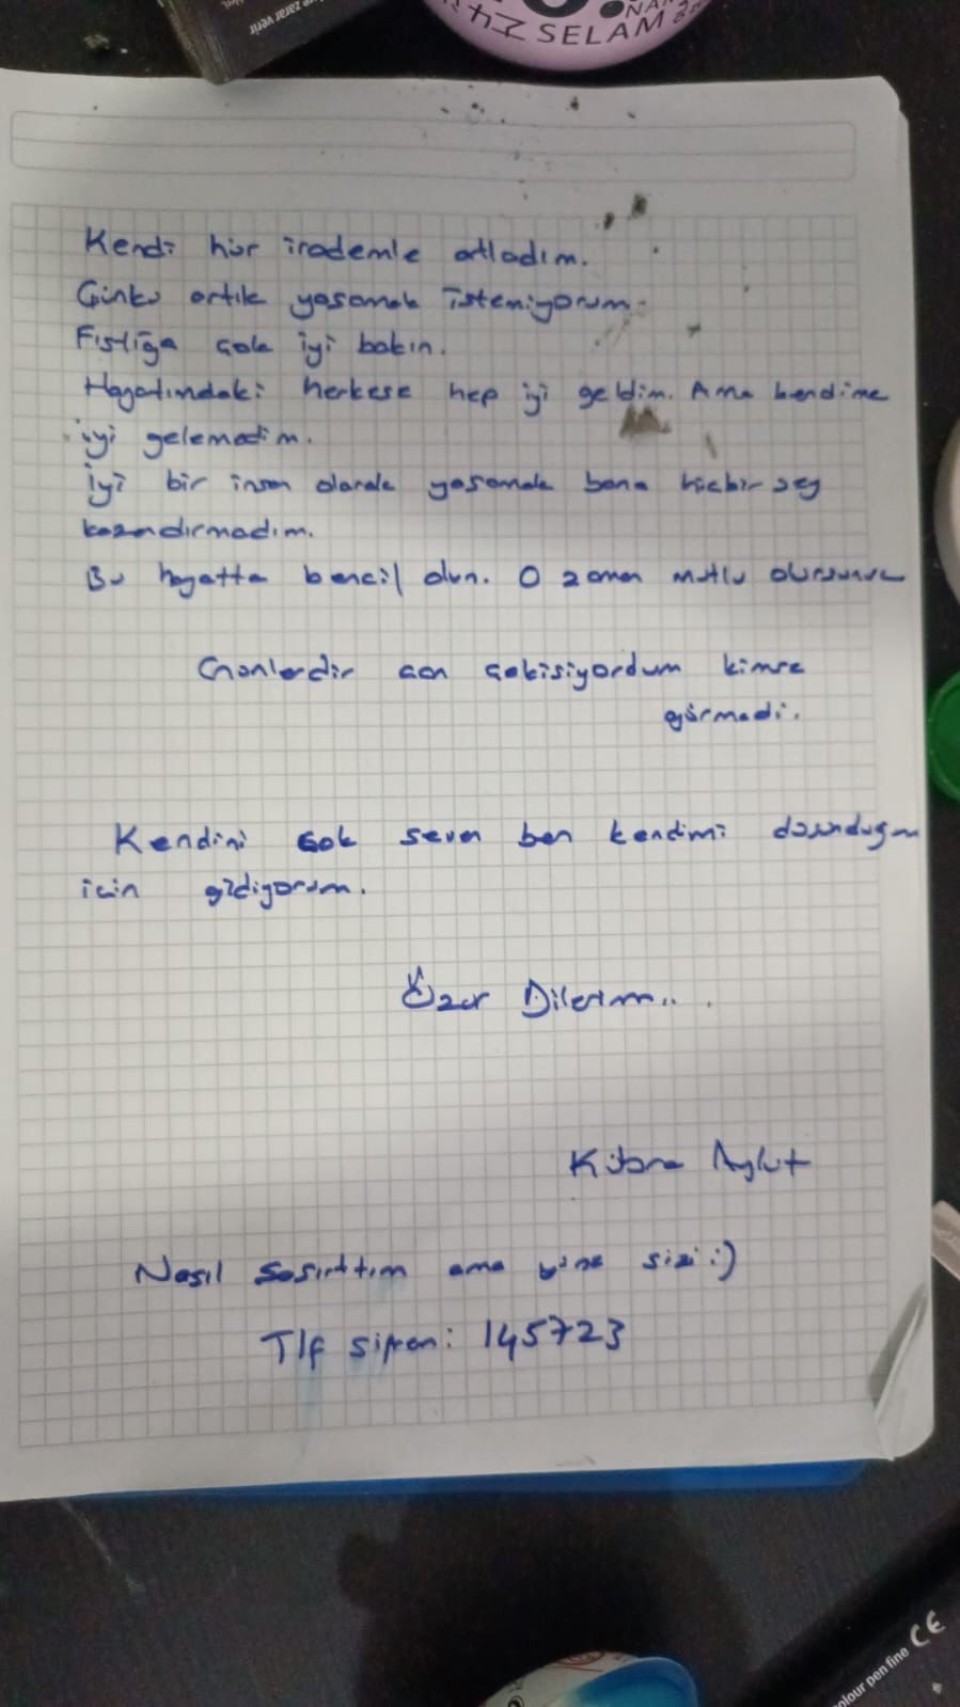 zarar verir
SELAM
Kendi hür irademle atladım.
Çünkü artık yaşamak istemiyorum.
Fıstığa çok iyi bakın.
Hayatımdaki herkese hep iyi geldim. Ama kendime
iyi gelemedim.
İyi bir insan olarak yaşamak bana hiçbir şey
kazandırmadım.
Bu hayatta bencil olun. O zaman mutlu olursunuz
Günlerdir can çekişiyordum kimse
görmedi.
Kendini çok seven ben kendimi düşündüğüm
için gidiyorum.
Özür Dilerim...
Kübra Aykut
Nasıl şaşırttım ama yine sizi :)
Tlf şifrem: 145723
pen fine CE